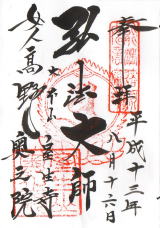 奉拝
平成十三年
八月十六日
弘法大師
女人高野
室生寺
奥之院